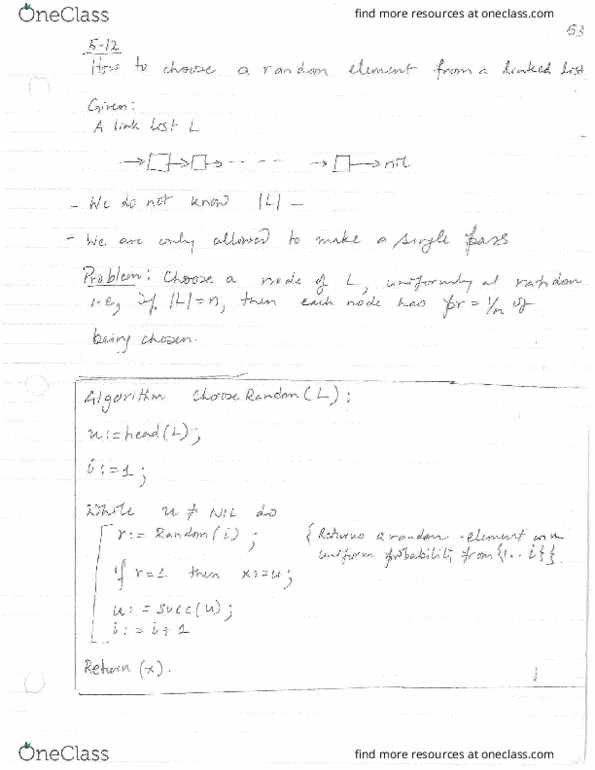 OneClass
find more resources at oneclass.com
53
5-12
How to choose a random element from a linked list
Given:
A link list L
nil
- We do not know |L| -
- We are only allowed to make a single pass
Problem: Choose a node of L, uniformly at random
i.e, if |L|=n, then each node has pr = 1/n of
being chosen.
Algorithm ChooseRandom(L);
u:=head(L);
i:=1;
While u ≠ NIL do
r:= Random(i); {Returns a random element with
uniform probability from {1..i}}.
if r=1 then x:=u;
u:=succ(u);
i:=i+1
Return(x).
OneClass
find more resources at oneclass.com